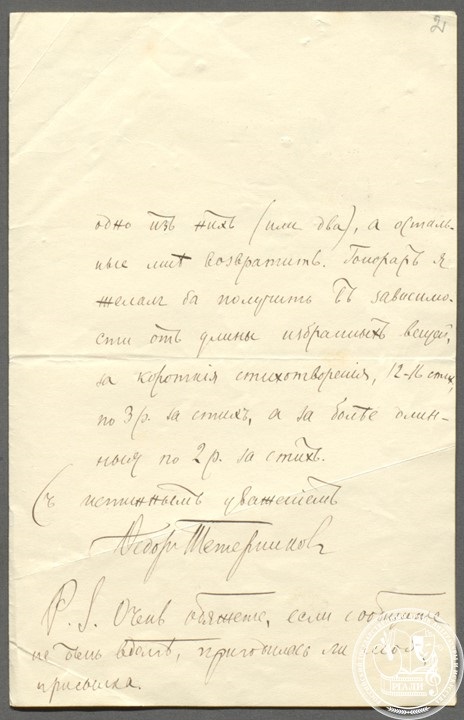 2
одно изъ нихъ (или два), а осталь-
ные мнѣ возвратить. Гонораръ я
желалъ бы получить въ зависимо-
сти отъ длины избранныхъ вещей,
за короткія стихотворенія, 12-16 стих,
по 3 р. за стихъ, а за болѣе длин-
ныя по 2 р. за стихъ.
Съ истиннымъ уваженіемъ
Ѳедоръ Тетерниковъ
P. S. Очень обяжете, если сообщите
не
пригодилась ли моя
присылка.
РГАЛИ